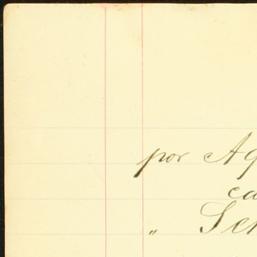 por Ag
ca
" Ser